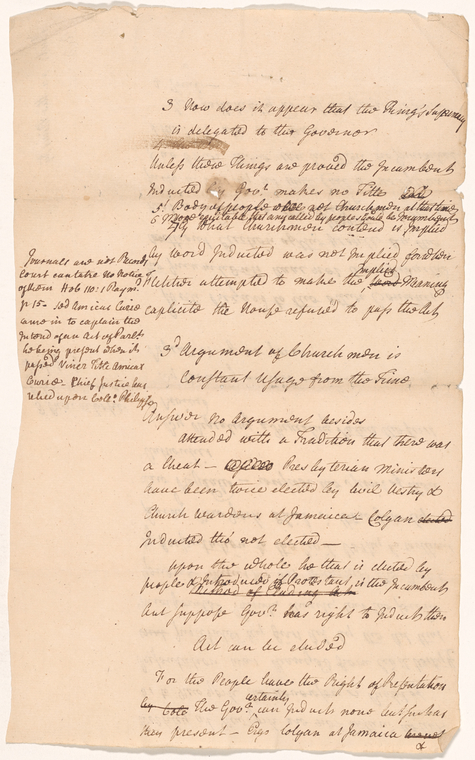 3 How does it appear that the King's Supremacy
is delegated to the Governor
Unless these Things are proved the Incumbent
Inducted by Gov.r makes no Title
5 Body of people were not Churchmen at that time
6 None
7ly What Churchmen contend is Implied
by word Inducted was not Implied for when
Fletcher attempted to make the Implied Meaning
explicite the House refused to pass the Act
Journals are not Records
Court can take no Notice
of them Hob 110: 1 Raym.
p 15 - Sed Amicus Curie
came in to explain the
Intend of an Act of Parl.t
he being present when it
passed Viner Title Amicus
Curie. Chief Justice has
relied upon Cole.o Philips
3.d Argument of Church men is
Constant Usage from the Time
Answer No Argument besides
attended with a Tradition that there was
a Cheat - Presbyterian Ministers
have been twice elected by Civil Vestry &
Church Wardens at Jamaica & Colgan elected
Inducted tho' not elected -
upon the whole he that is elected by
people & Introduced if Protestant, is the Incumbent
But suppose Gov.r has right to Induct then
Act can be eluded
For the People have the Right of Presentation
by Cole The Gov.r certainly can Induct none but such as
they present - Ergo Colgan at Jamaica
&